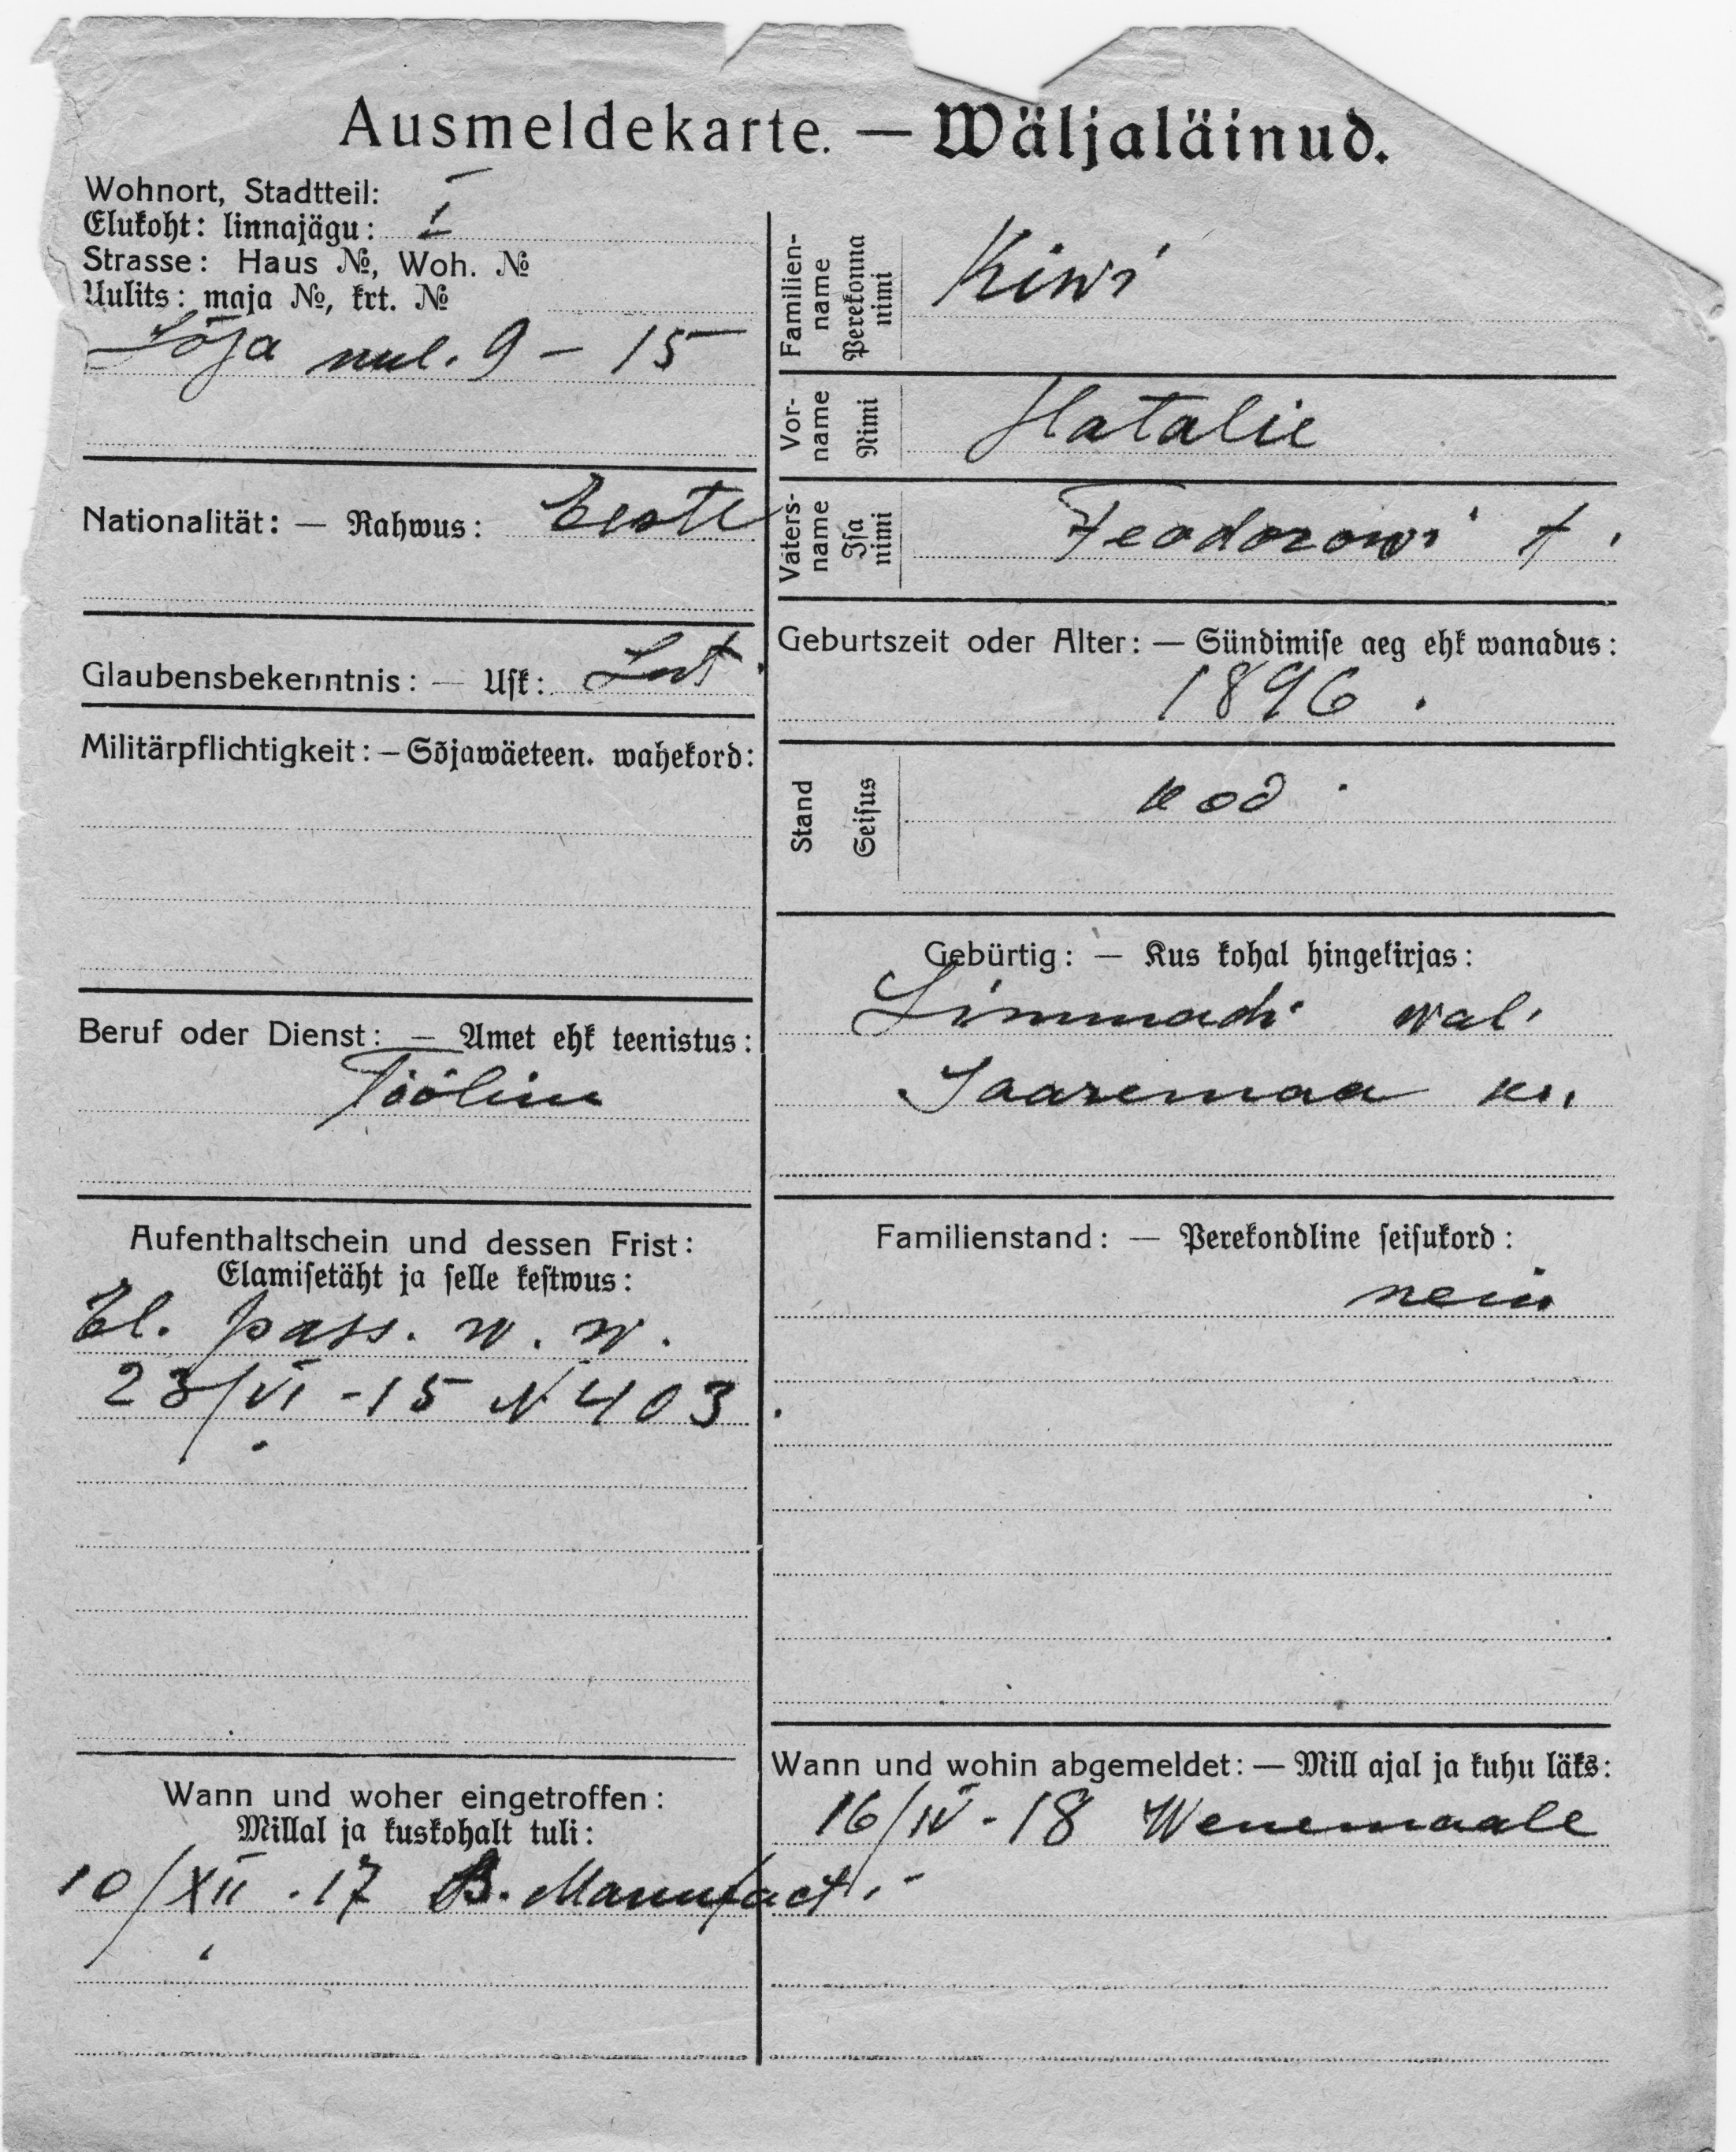 Ausmeldekarte. — Wäljaläinud.
Wohnort, Stadtteil:
Elukoht: linnajägu: I
Strasse: Haus №, Woh. №
Uulits: maja №, krt. №
Sõja uul. 9 – 15
Nationalität: — Rahwus: Eeste
Glaubensbekenntnis: — Usk: Lut.
Militärpflichtigkeit: — Sõjawäeteen. wahekord:
Beruf oder Dienst: — Amet ehk teenistus:
Tööline
Aufenthaltschein und dessen Frist:
Elamisetäht ja selle kestwus:
El. pass. w. w.
23/VI - 15 N 403.
Wann und woher eingetroffen:
Millal ja kuskohalt tuli:
10/XII . 17 B. Manufact.
Familien-
name
Perekonna
nimi
Kiwi
Vor-
name
Nimi
Natalie
Vaters-
name
Isa
nimi
Feodorowi t.
Geburtszeit oder Alter: — Sündimise aeg ehk wanadus:
1896.
Stand
Seisus
kod.
Gebürtig: — Kus kohal hingekirjas:
wal.
Saaremaa kr.
Familienstand: — Perekondline seisukord:
neiu
Wann und wohin abgemeldet: — Mill ajal ja kuhu läks:
16/IV - 18 Wenemaale